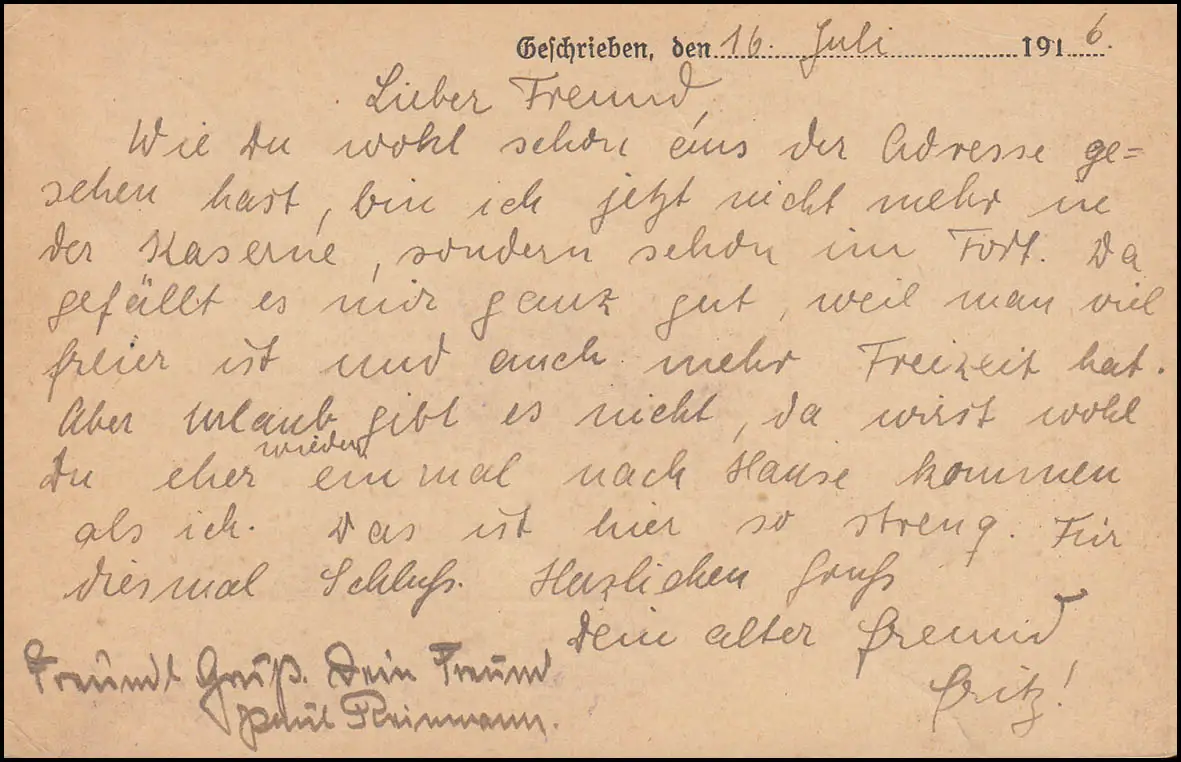 Geschrieben, den 16. Juli 1916.
Lieber Freund,
Wie Du wohl schon aus der Adresse ge=
sehen hast, bin ich jetzt nicht mehr in
der Kaserne, sondern schon im Fort. Da
gefällt es mir ganz gut, weil man viel
freier ist und auch mehr Freizeit hat.
Aber Urlaub gibt es nicht, da wirst wohl
Du eher wieder einmal nach Hause kommen
als ich. Das ist hier so streng. Für
diesmal Schluß. Herzlichen Gruß
Dein alter Freund
Fritz!
Freundl Gruß. Dein Freund
Paul Reinmann.